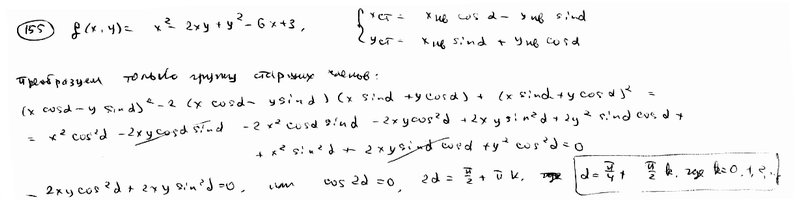 155 f(x,y) = x² - 2xy + y² - 6x + 3, { xст = xнв cos α - yнв sin α
yст = xнв sin α + yнв cos α
Преобразуем только группу старших членов:
(x cosα - y sinα)² - 2 (x cosα - y sinα)(x sinα + y cosα) + (x sinα + y cosα)² =
= x² cos²α - 2xy cosα sinα - 2x² cosα sinα - 2xy cos²α + 2xy sin²α + 2y² sinα cosα +
+ x² sin²α + 2xy sinα cosα + y² cos²α = 0
- 2xy cos²α + 2xy sin²α = 0, или cos 2α = 0, 2α = π/2 + πk, α = π/4 + π/2 k, где k = 0, 1, 2, ...